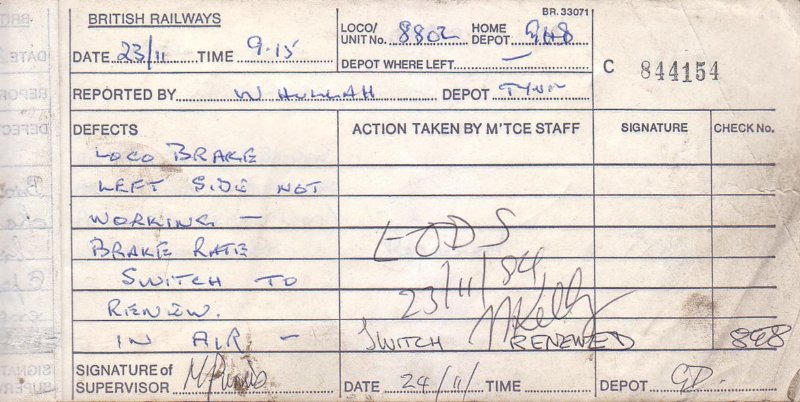 BR. 33071
BRITISH RAILWAYS
DATE 23/11 TIME 9.15
LOCO/ UNIT No. 8802 HOME DEPOT
DEPOT WHERE LEFT —
C 844154
REPORTED BY W HULLAH DEPOT TYNE
DEFECTS ACTION TAKEN BY M'TCE STAFF SIGNATURE CHECK No.
LOCO BRAKE
LEFT SIDE NOT
WORKING —
BRAKE RATE
SWITCH TO
RENEW.
IN AIR —
23/11/84
M Kelly
SWITCH RENEWED 898
SIGNATURE of SUPERVISOR
DATE 24/11/ TIME DEPOT GD.